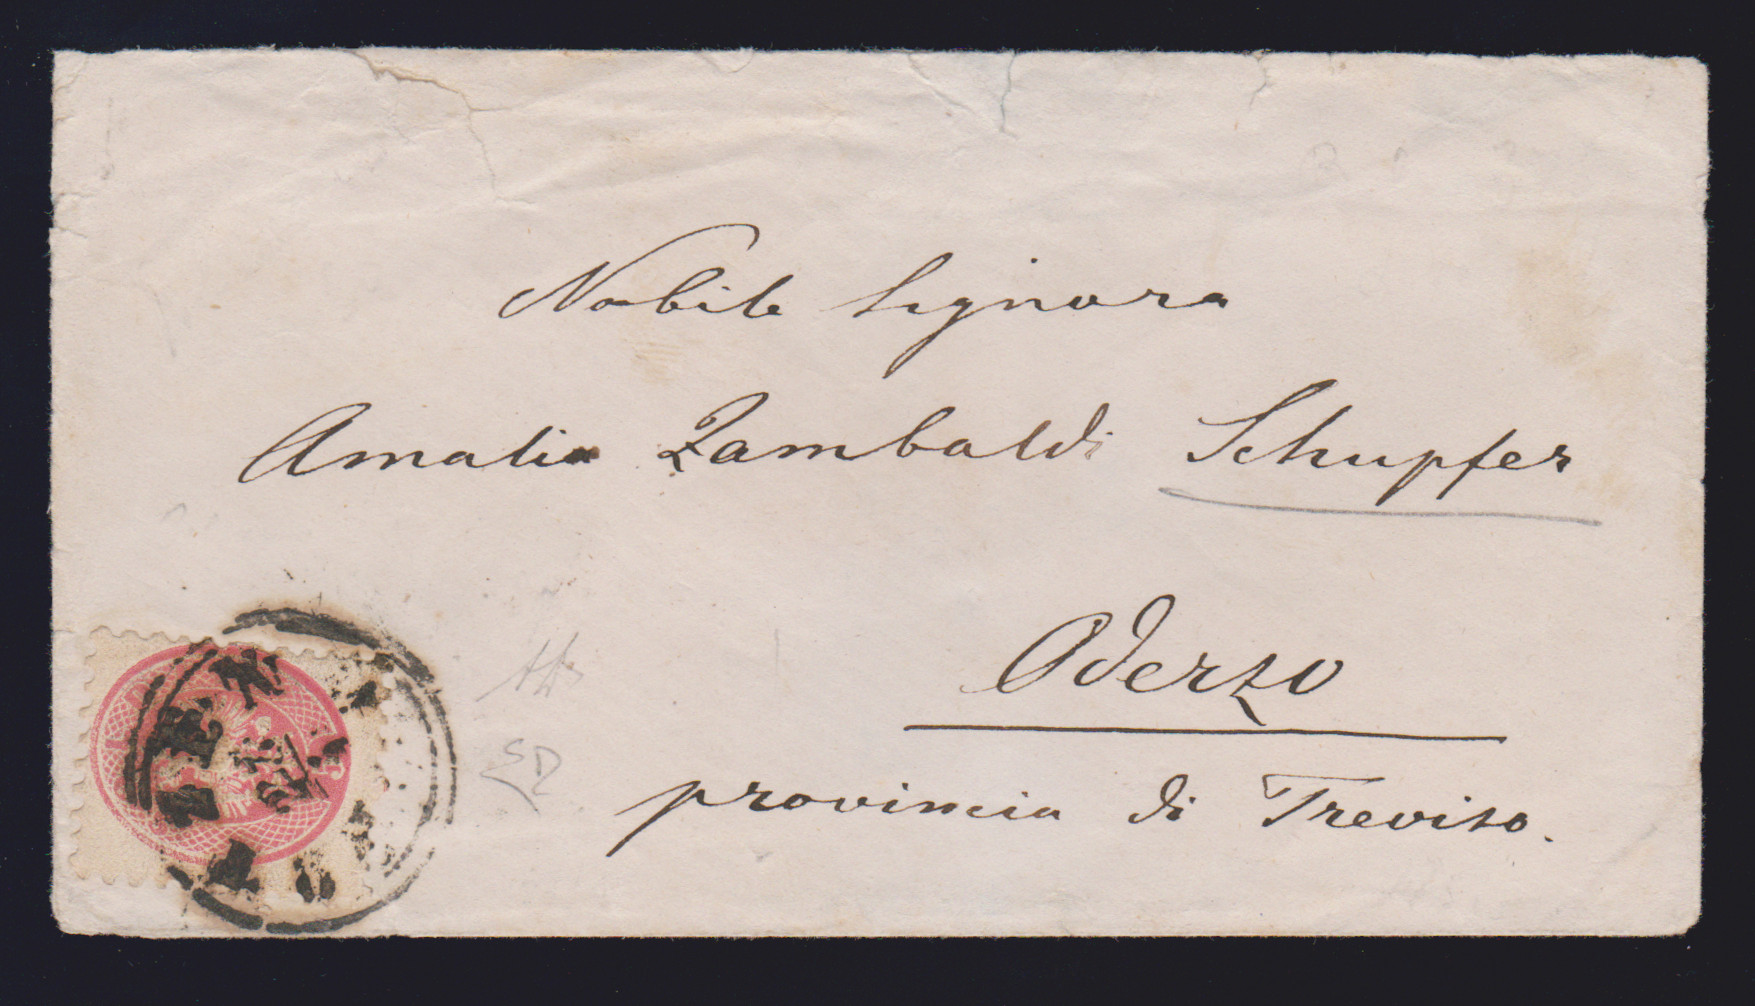 Nobile Signora
Amalia Zambaldi Schupfer
Oderzo
provincia di Treviso.